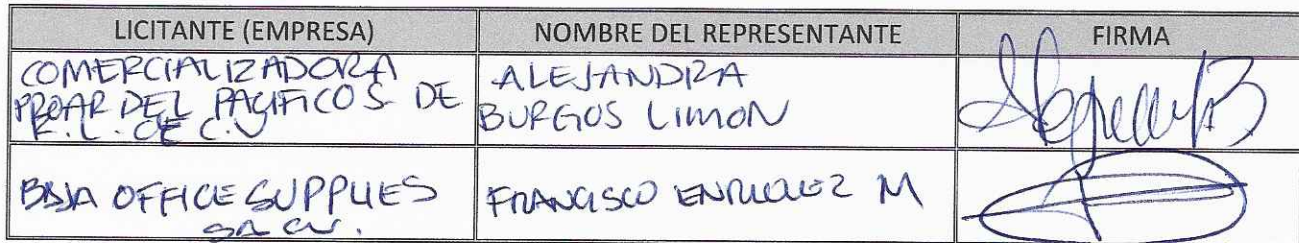 LICITANTE (EMPRESA) NOMBRE DEL REPRESENTANTE FIRMA
COMERCIALIZADORA
PROAR DEL PACIFICO S. DE
R.L. DE C.V
ALEJANDRA
BURGOS LIMON
BAJA OFFICE SUPPLIES
SA CV.
FRANCISCO ENRIQUEZ M